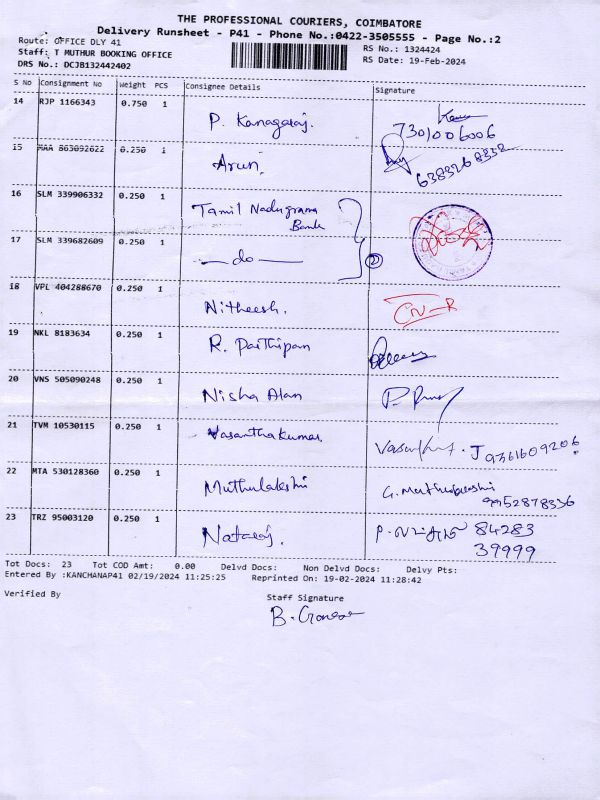 THE PROFESSIONAL COURIERS, COIMBATORE
Delivery Runsheet - P41 - Phone No.:0422-3505555 - Page No.:2
Route: OFFICE DLY 41
RS No.: 1324424
Staff: T MUTHUR BOOKING OFFICE
RS Date: 19-Feb-2024
DRS No.: DCJB132442402
S No Consignment No Weight PCS Consignee Details Signature
14 RJP 1166343 0.750 1 P. Kanagaraj. 7301006006
15 MAA 863092622 0.250 1 Arun. 6383268332
16 SLM 339906332 0.250 1 Tamil Nadu grama
Bank
17 SLM 339682609 0.250 1 — do — 2
18 VPL 404288670 0.250 1 Nitheesh.
19 NKL 8183634 0.250 1 R. Parthipan
20 VNS 505090248 0.250 1 Nisha Alan
21 TVM 10530115 0.250 1 Vasanthakumar. J 9361609206
22 MTA 530128360 0.250 1 Muthulakshmi G. Muthulakshmi
9952878336
23 TRZ 95003120 0.250 1 Nataraj. 84283
39999
Tot Docs: 23 Tot COD Amt: 0.00 Delvd Docs: Non Delvd Docs: Delvy Pts:
Entered By :KANCHANAP41 02/19/2024 11:25:25 Reprinted On: 19-02-2024 11:28:42
Verified By
Staff Signature